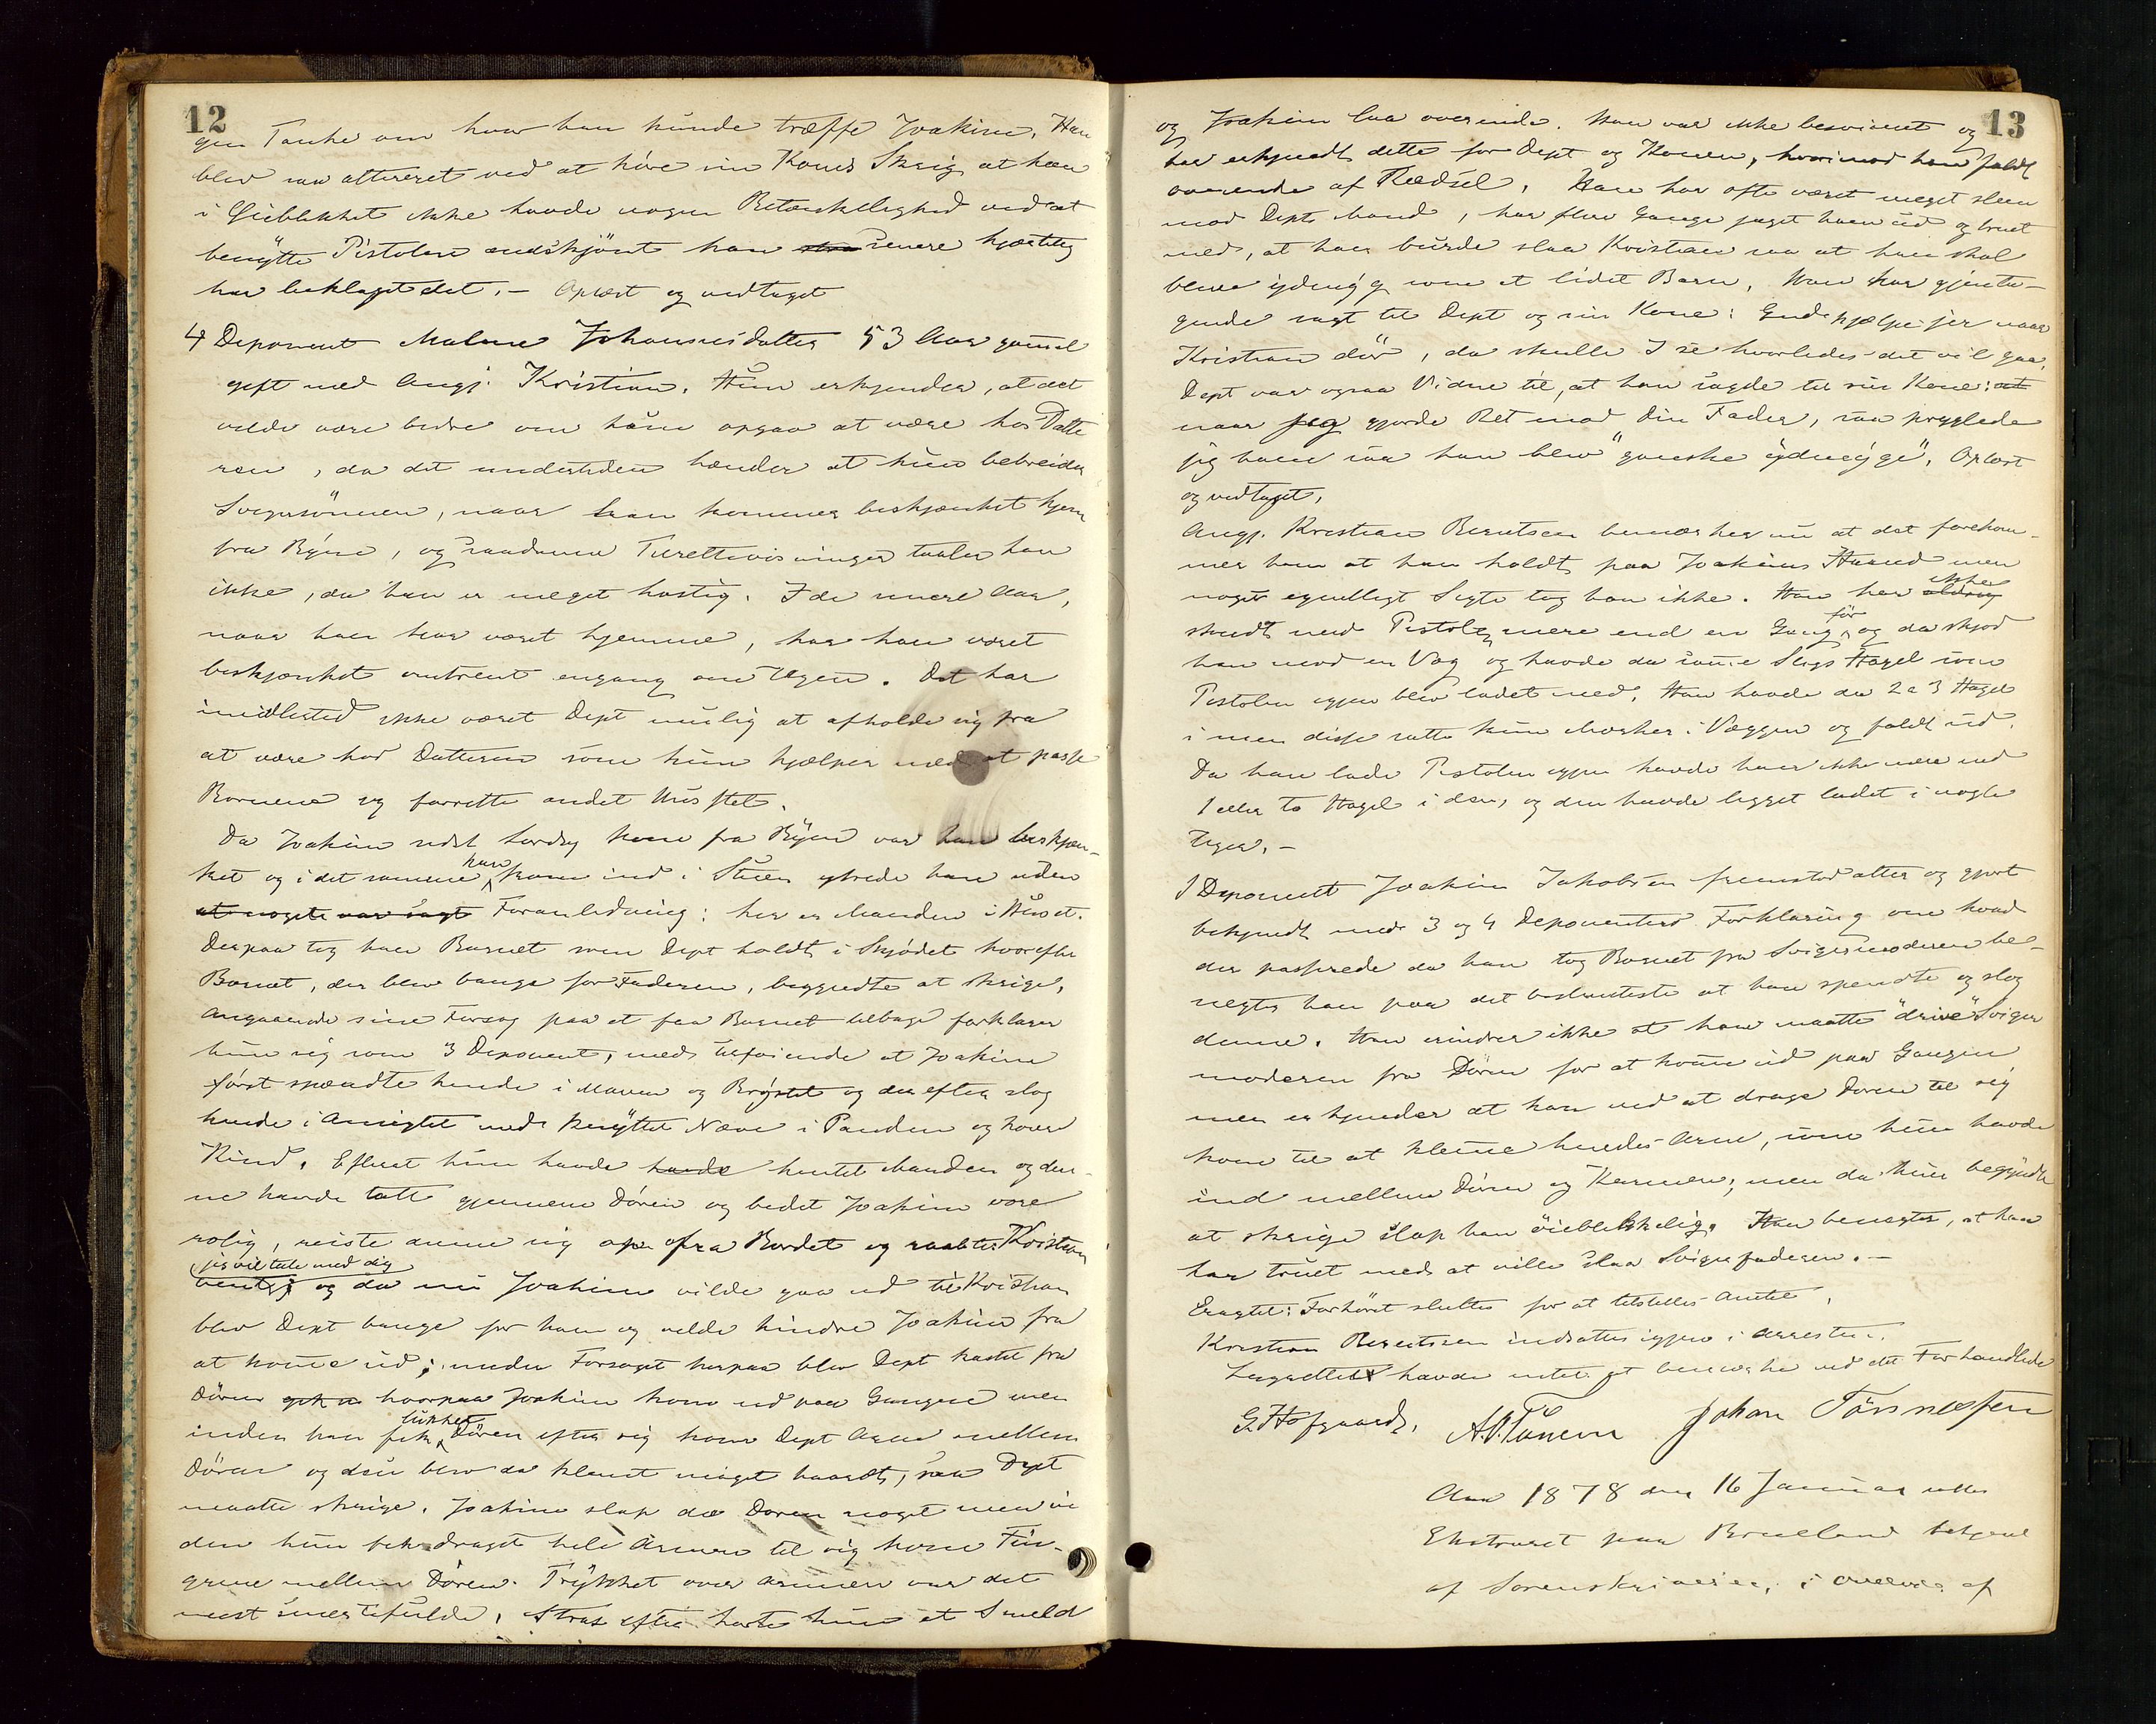 12
gen Tanke om hvor han kunde træffe Joakim. Han
blev saa altereret ved at höre sin Kones Skrig at han
i Öieblikket ikke havde nogen Betænkelighed ved at
benytte Pistolen endskjönt han senere hjertelig
har beklaget det. – Oplæst og vedtaget
4 Deponent Malene Johannesdatter 53 Aar gammel
gift med Angj. Kristian. Hun erkjender, at det
vilde være bedre om hun opgav at være hos Datte
ren, da det undertiden hænder at hun bebreider
Svigersönnen, naar han kommer beskjænket hjem
fra Byen, og saadanne Tilrettevisninger taaler han
ikke, da han er meget hastig. I de senere Aar,
naar han har været hjemme, har han været
beskjænket omtrent engang om Ugen. Det har
imidlertid ikke været Dept mulig at afholde sig fra
at være hos Datteren som hun hjælper med at passe
Börnene og forrette andet Husstel.
Da Joakim sidst Lördag kom fra Byen var han beskjæn-
ket og i det samme han kom ind i Stuen ytrede han uden
at noget var sagt Foranledning: her er Manden i Huset.
Derpaa tog han Barnet som Dept holdt i Skjödet hvorefter
Barnet, der blev bange for Faderen, begyndte at skrige.
Angaaende sine Forsög paa at faa Barnet tilbage forklarer
hun sig som 3 Deponent, med Tilföiende at Joakim
först spændte hende i Maven og Brystet og derefter slog
hende i Ansigtet med knyttet Næve i Panden og hver
Kind. Efterat hun havde havde hentet Manden og den-
ne havde talt gjennem Dören og bedet Joakim være
rolig, reiste denne sig op fra Bordet og raabte: Kristian
jeg vil tale med dig
vent; og da nu Joakim vilde gaa ud til Kristian
blev Dept bange for ham og vilde hindre Joakim fra
at komme ud; under Forsöget herpaa blev Dept kastet fra
Dören hvorpaa Joakim kom ud paa Gangen men
inden han fik lukket Dören efter sig kom Dept Arm mellem
Dören og den blev da klemt meget haardt, saa Dept
maatte skrige. Joakim slap da Dören noget men in
den hun fik draget hele Armen til sig kom Fin-
grene mellem Dören. Trykket over Armen var det
mest smertefulde. Strax efter hörte hun et Smeld
13
og Joakim laa overende. Han var ikke besvimet og
har erkjendt dette for Dept og Konen, hvorimod han faldt
overende af Rædsel. Han har ofte været meget slem
mod Depts Mand, har flere Gange jaget ham ud og truet
med, at han burde slaa Kristian saa at han skal
blive ydmyg som et lidet Barn. Han har gjenta-
gende sagt til Dept og sin Kone: Gud hjælpe jer naar
Kristian dör, da skulle I se hvorledes det vil gaa.
Dept var ogsaa Vidne til, at han sagde til sin Kone: at
naar jeg gjorde Ret mod din Fader, saa pryglede
jeg ham saa han blev "ganske ydmyge". Oplæst
og vedtaget.
Angj. Kristian Berntsen bemærker nu at det forekom-
mer ham at han holdt paa Joakims Haand men
noget egentligt Sigte tog han ikke. Han har aldrig ikke
skudt med Pistolen mere end en Gang för og da skjöd
han mod en Væg og havde da samme Slags Hagel som
Pistolen igjen blev ladet med. Han havde da 2 a 3 Hagel
i men disse satte kun Mærker i Væggen og faldt ud.
Da han lade Pistolen igjen havde han ikke mere end
1 eller to Hagel i den, og den havde ligget ladet i nogle
Uger. –
1 Deponent Joakim Jakobsen fremstod atter og gjort
bekjendt med 3 og 4 Deponenters Forklaring om hvad
der passerede da han tog Barnet fra Svigermoderen be-
negter han paa det bestemteste at han spændte og slog
denne. Han erindrer ikke at han maatte "drive" Sviger
moderen fra Dören for at komme ud paa Gangen
men erkjender at han ved at drage Dören til sig
kom til at klemme hendes Arm, som hun havde
ind mellem Dören og Karmen; men da hun begyndte
at skrige slap han öieblikkelig. Han benegter, at han
har truet med at ville slaa Svigerfaderen. –
Eragtet: Forhöret sluttes for at tilstilles Amtet.
Kristian Berntsen indsattes igjen i Arresten.
Lagrettet havde intet at bemærke ved det Forhandlede
G. Hofgaard. A. P. Tönnesen Johan Tönnesen
Aar 1878 den 16 Januar sattes
Extraret paa Brueland betjent
af Sorenskriveren, i Overvær af